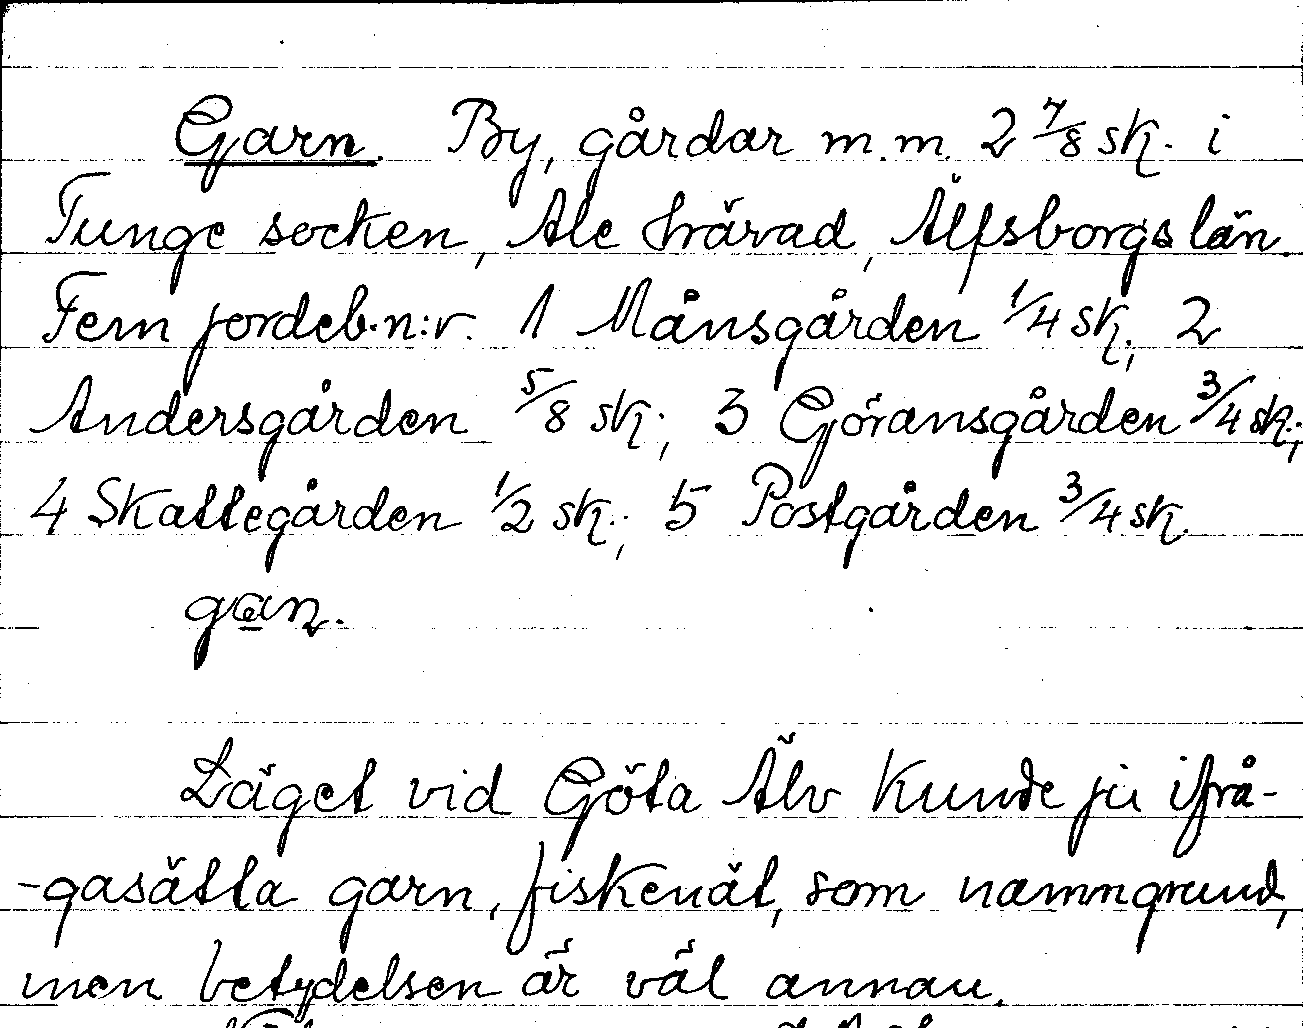 Garn. By, gårdar m.m. 2 7/8 sk. i
Tunge socken, Ale härad, Älfsborgs län.
Fem jordeb.n:r. 1 Månsgården 1/4 sk.; 2
Andersgården 5/8 sk.; 3 Göransgården 3/4 sk.;
4 Skattegården 1/2 sk.; 5 Postgården 3/4 sk.
gan.
Läget vid Göta Älv kunde ju ifrå-
-gasätta garn, fiskenät, som namngrund,
men betydelsen är väl annan.